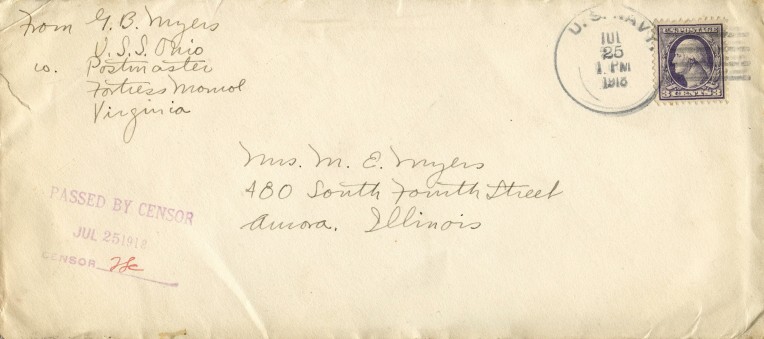 From G. B. Myers
U.S.S. Ohio
co. Postmaster
Fortress Monroe
Virginia
U.S. NAVY.
JUL
25
1 PM
1918
U.S. POSTAGE
3 CENTS 3
Mrs. M. E. Myers
480 South Fourth Street
Aurora, Illinois
PASSED BY CENSOR
JUL 25 1918
CENSOR